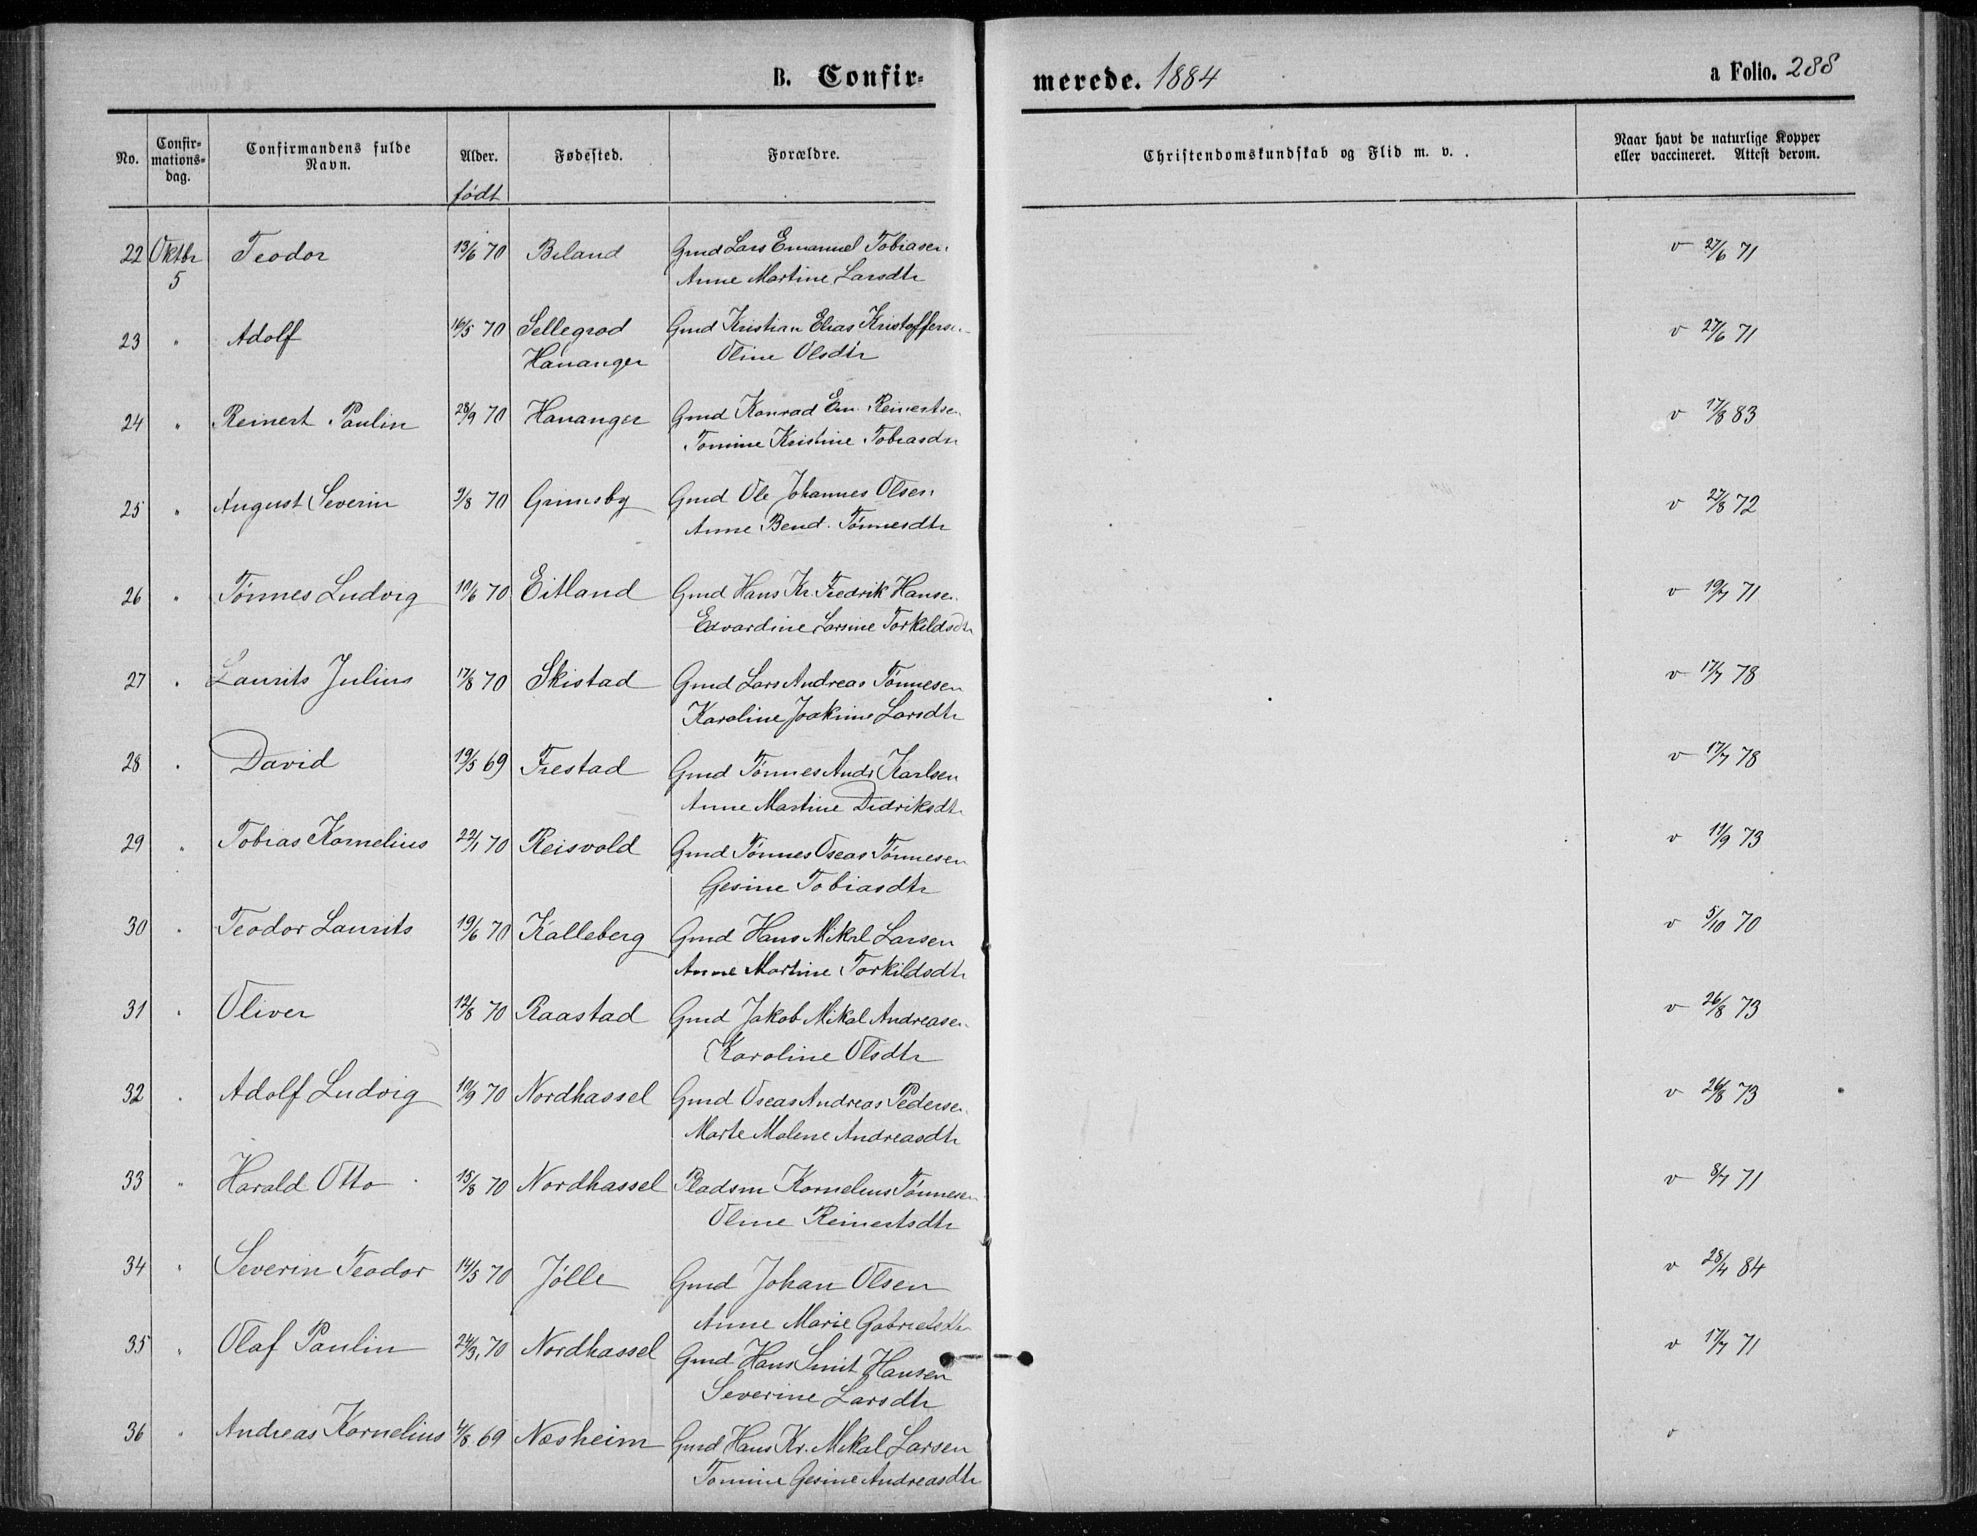 B. Confirmerede. 1884
a Folio. 288
No.
Confirmationsdag.
Confirmandens fulde Navn.
Alder.
født
Fødested.
Forældre.
Christendomskundskab og Flid m. v.
Naar havt de naturlige Kopper eller vaccineret. Attest derom.
22 Oktbr 5 Teodor 13/6 70 Beland Gmd Lars Emanuel Tobiasen v 27/6 71
Anne Martine Larsdtr
23 " Adolf 16/5 70 Sellegrod Gmd Kristian Elias Kristoffersen v 27/6 71
Hananger Oline Olsdtr
24 " Reinert Paulin 28/9 70 Hananger Gmd Konrad Em. Reinertsen v 17/8 83
Tomine Kristine Tobiasdtr
25 " August Severin 9/8 70 Grimsby Gmd Ole Johannes Olsen v 27/8 72
Anne Bend. Tønnesdtr
26 " Tønnes Ludvig 19/6 70 Eitland Gmd Hans Kr. Fredrik Hansen v 19/7 71
Edvardine Larsine Torkildsdtr
27 " Laurits Julius 17/8 70 Skistad Gmd Lars Andreas Tønnesen v 17/7 78
Karoline Joakime Larsdtr
28 " David 19/5 69 Frestad Gmd Tønnes Andr Karlsen v 17/7 78
Anne Martine Didriksdtr
29 " Tobias Kornelius 22/1 70 Reisvold Gmd Tønnes Oseas Tønnesen v 11/9 73
Gesine Tobiasdtr
30 " Teodor Laurits 19/6 70 Kalleberg Gmd Hans Mikal Larsen v 5/10 70
Anne Martine Torkildsdtr
31 " Oliver 12/8 70 Raastad Gmd Jakob Mikal Andreasen v 26/8 73
Karoline Olsdtr
32 " Adolf Ludvig 19/9 70 Nordhassel Gmd Oseas Andreas Pedersen v 26/8 73
Marte Malene Andreasdtr
33 " Harald Otto 15/8 70 Nordhassel Pladsm Kornelius Tønnesen v 8/7 71
Oline Reinertsdtr
34 " Severin Teodor 14/5 70 Jølle Gmd Johan Olsen v 28/4 84
Anne Marie Gabrielsdtr
35 " Olaf Paulin 24/3 70 Nordhassel Gmd Hans Smit Hansen v 17/7 71
Severine Larsdtr
36 " Andreas Kornelius 4/8 69 Nesheim Gmd Hans Kr. Mikal Larsen v
Tomine Gesine Andreasdtr